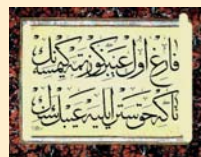 فارغ اول عيبن كوزتمه كيمسه نك
تا كه حق ستر ايليه عيبك سنك